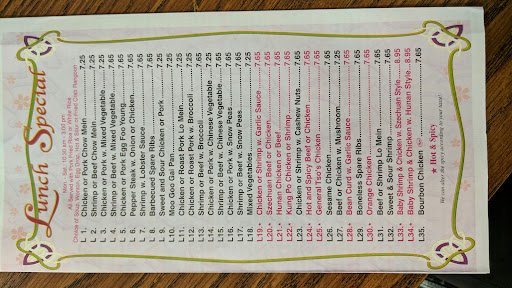 Lunch Special
Mon. - Sat. 10:30 am - 3:00 pm
L 1. Chicken or Pork Chow Mein 7.25
L 2. Shrimp or Beef Chow Mein 7.25
L 3. Chicken or Pork w. Mixed Vegetable 7.25
L 4. Shrimp or Beef w. Mixed Vegetable 7.65
L 5. Chicken or Pork Egg Foo Young 7.25
L 6. Pepper Steak w. Onion or Chicken 7.65
L 7. Shrimp w. Lobster Sauce 7.65
L 8. Barbecued Spare Ribs 7.65
L 9. Sweet and Sour Chicken or Pork 7.25
L10. Moo Goo Gai Pan 7.25
L11. Chicken or Roast Pork Lo Mein 7.25
L12. Chicken or Roast Pork w. Broccoli 7.25
L13. Shrimp or Beef w. Broccoli 7.65
L14. Chicken or Pork w. Chinese Vegetable 7.25
L15. Shrimp or Beef w. Chinese Vegetable 7.65
L16. Chicken or Pork w. Snow Peas 7.25
L17. Shrimp or Beef w. Snow Peas 7.65
L18. Mixed Vegetables 7.25
L19. Chicken or Shrimp w. Garlic Sauce 7.65
L20. Szechuan Beef or Chicken 7.65
L21. Hunan Chicken or Beef 7.65
L22. Kung Po Chicken or Shrimp 7.65
L23. Chicken or Shrimp w. Cashew Nuts 7.65
L24. Hot and Spicy Beef or Chicken 7.65
L25. General Tso's Chicken 7.65
L26. Sesame Chicken 7.65
L27. Beef or Chicken w. Mushroom 7.65
L28. Bean Curd w. Garlic Sauce 7.65
L29. Boneless Spare Ribs 7.65
L30. Orange Chicken 7.65
L31. Beef or Shrimp Lo Mein 7.65
L32. Sweet & Sour Shrimp 7.65
L33. Baby Shrimp & Chicken w. Szechuan Style 8.95
L34. Baby Shrimp & Chicken w. Hunan Style 8.95
L35. Bourbon Chicken 7.65
Hot & Spicy
We can alter the spice according to your taste!